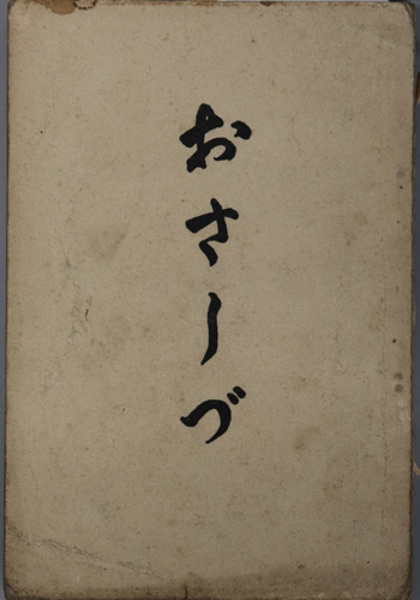 おさしづ